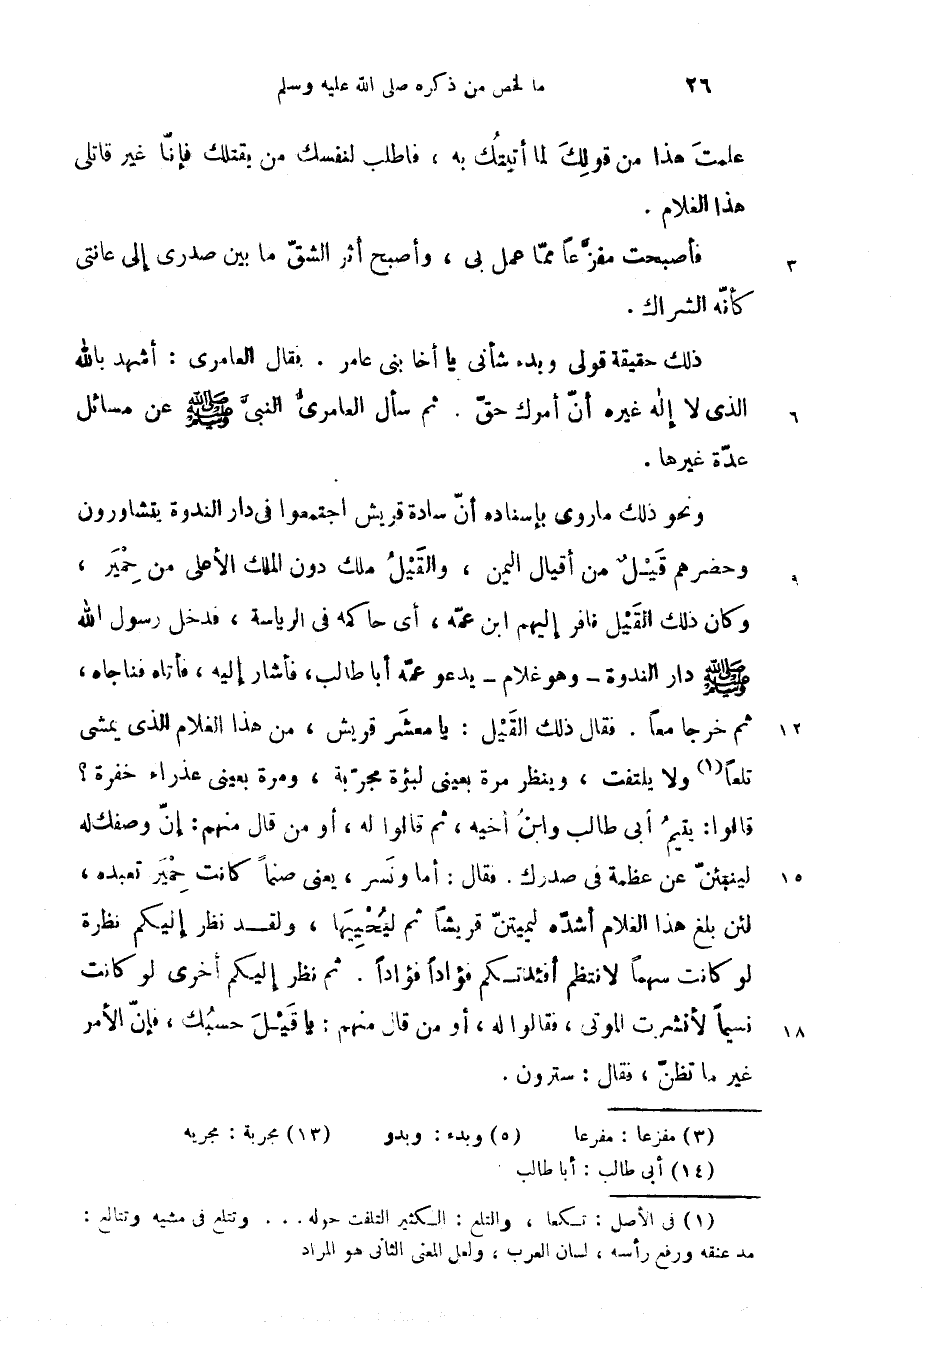 ٢٦ ما لخص من ذكره صلى الله عليه وسلم
علمتَ هذا من قولِكَ لما أتيتُك به ، فاطلب لنفسك من يقتلك فإنّا غير قاتلى
هذا الغلام .
٣ فأصبحت مفزَّعاً ممّا عمل بى ، وأصبح أثر الشقّ ما بين صدرى إلى عانتى
كأنّه الشراك .
ذلك حقيقة قولى وبدء شأنى يا أخا بنى عامر . فقال العامرى : أشهد بالله
٦ الذى لا إلٰه غيره أنّ أمرك حقّ . ثم سأل العامرىُّ النبىَّ ﷺ عن مسائل
عدّة غيرها .
ونحو ذلك ماروى بإسناده أنّ سادة قريش اجتمعوا فى دار الندوة يتشاورون
٩ وحضرهم قَيْلٌ من أقيال اليمن ، والقَيْلُ ملك دون الملك الأعلى من حِمْيَر ،
وكان ذلك القَيْل نافر إليهم ابن عمّه ، أى حاكمه فى الرياسة ، فدخل رسول الله
ﷺ دار الندوة ــ وهو غلام ــ يدعو عمّه أبا طالب، فأشار إليه ، فأتاه فناجاه ،
١٢ ثم خرجا معاً . فقال ذلك القَيْل : يا معشَر قريش ، من هذا الغلام الذى يمشى
تلعاً(١) ولا يلتفت ، وينظر مرة بعينى لبؤة مجرّبة ، ومرة بعينى عذراء خفرة ؟
قالوا: يتيمُ أبى طالب وابنُ أخيه ، ثم قالوا له ، أو من قال منهم: إنّ وصفك له
١٥ لينبئنّ عن عظمة فى صدرك . فقال : أما ونَسر ، يعنى صنماً كانت حِمْيَر تعبده ،
لئن بلغ هذا الغلام أشدّه ليميتنّ قريشاً ثم ليُحْيِيَنها ، ولقــد نظر إليكم نظرة
لو كانت سهماً لانتظم أفئدتـكم فؤاداً فؤاداً . ثم نظر إليكم أخرى لو كانت
١٨ نسيماً لأنشرت الموتى ، فقالوا له ، أو من قال منهم : يا قَيْلَ حسبُك ، فإنّ الأمر
غير ما تظنّ ، فقال : سترون .
(٣) مفزعا : مفرعا (٥) وبدء : وبدو (١٣) مجربة : مجريه
(١٤) أبى طالب : أبا طالب
(١) فى الأصل : تـكعا ، والتلع : الـكثير التلفت حوله . . . وتتلع فى مشيه وتتالع :
مد عنقه ورفع رأسه ، لسان العرب ، ولعل المعنى الثانى هو المراد